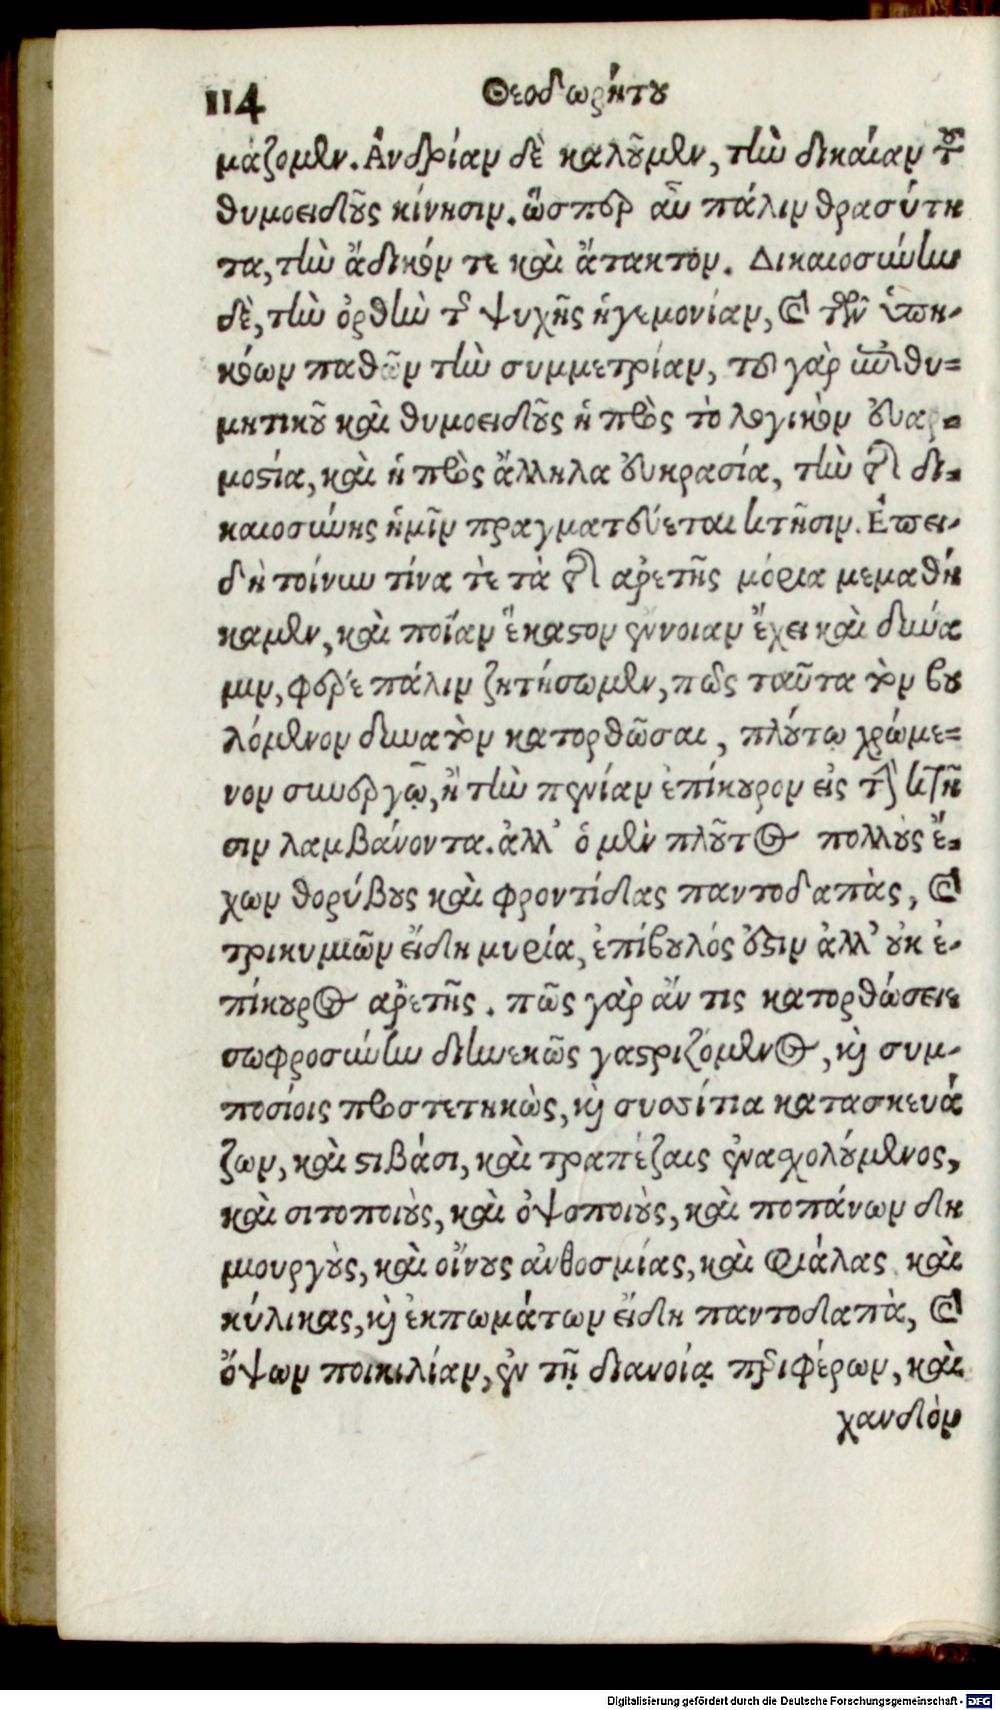 114 Θεοδωρήτου
μάζομεν. Ἀνδρίαν δὲ καλοῦμεν, τὴν δικαίαν τοῦ
θυμοειδοῦς κίνησιν. ὥσπερ αὖ πάλιν θρασύτη
τα, τὴν ἄδικόν τε καὶ ἄτακτον. Δικαιοσύνην
δὲ, τὴν ὀρθὴν τῆς ψυχῆς ἡγεμονίαν, καὶ τῶν ὑπη-
κόων παθῶν τὴν συμμετρίαν, τοῦ γὰρ ἐπιθυ-
μητικοῦ καὶ θυμοειδοῦς ἡ πρὸς τὸ λογικὸν εὐαρ-
μοστία, καὶ ἡ πρὸς ἄλληλα εὐκρασία, τὴν τῆς δι-
καιοσύνης ἡμῖν πραγματεύεται κτῆσιν. Ἐπει-
δὴ τοίνυν τίνα τὲ τὰ τῆς ἀρετῆς μόρια μεμαθή
καμεν, καὶ ποίαν ἕκαστον ἔννοιαν ἔχει καὶ δύνα
μιν, φέρε πάλιν ζητήσωμεν, πῶς ταῦτα τὸν βου
λόμενον δυνατὸν κατορθῶσαι, πλούτῳ χρώμε-
νον συνεργῷ, ἢ τὴν πενίαν ἐπίκουρον εἰς τὴν κτῆ
σιν λαμβάνοντα. ἀλλ' ὁ μὲν πλοῦτος πολλοὺς ἔ-
χων θορύβους καὶ φροντίδας παντοδαπὰς, καὶ
τρικυμιῶν εἴδη μυρία, ἐπίβουλός ἐστιν ἀλλ' οὐκ ἐ-
πίκουρος ἀρετῆς. πῶς γὰρ ἄν τις κατορθώσειε
σωφροσύνην διηνεκῶς γαστριζόμενος, καὶ συμ-
ποσίοις προστετηκὼς, καὶ συσσίτια κατασκευά
ζων, καὶ στιβάσι, καὶ τραπέζαις ἐνασχολούμενος,
καὶ σιτοποιοὺς, καὶ ὀψοποιοὺς, καὶ ποπάνων δη
μιουργοὺς, καὶ οἴνους ἀνθοσμίας, καὶ φιάλας καὶ
κύλικας, καὶ ἐκπωμάτων εἴδη παντοδαπὰ, καὶ
ὄψων ποικιλίαν, ἐν τῇ διανοίᾳ περιφέρων, καὶ
χανδὸν
Digitalisierung gefördert durch die Deutsche Forschungsgemeinschaft - DFG